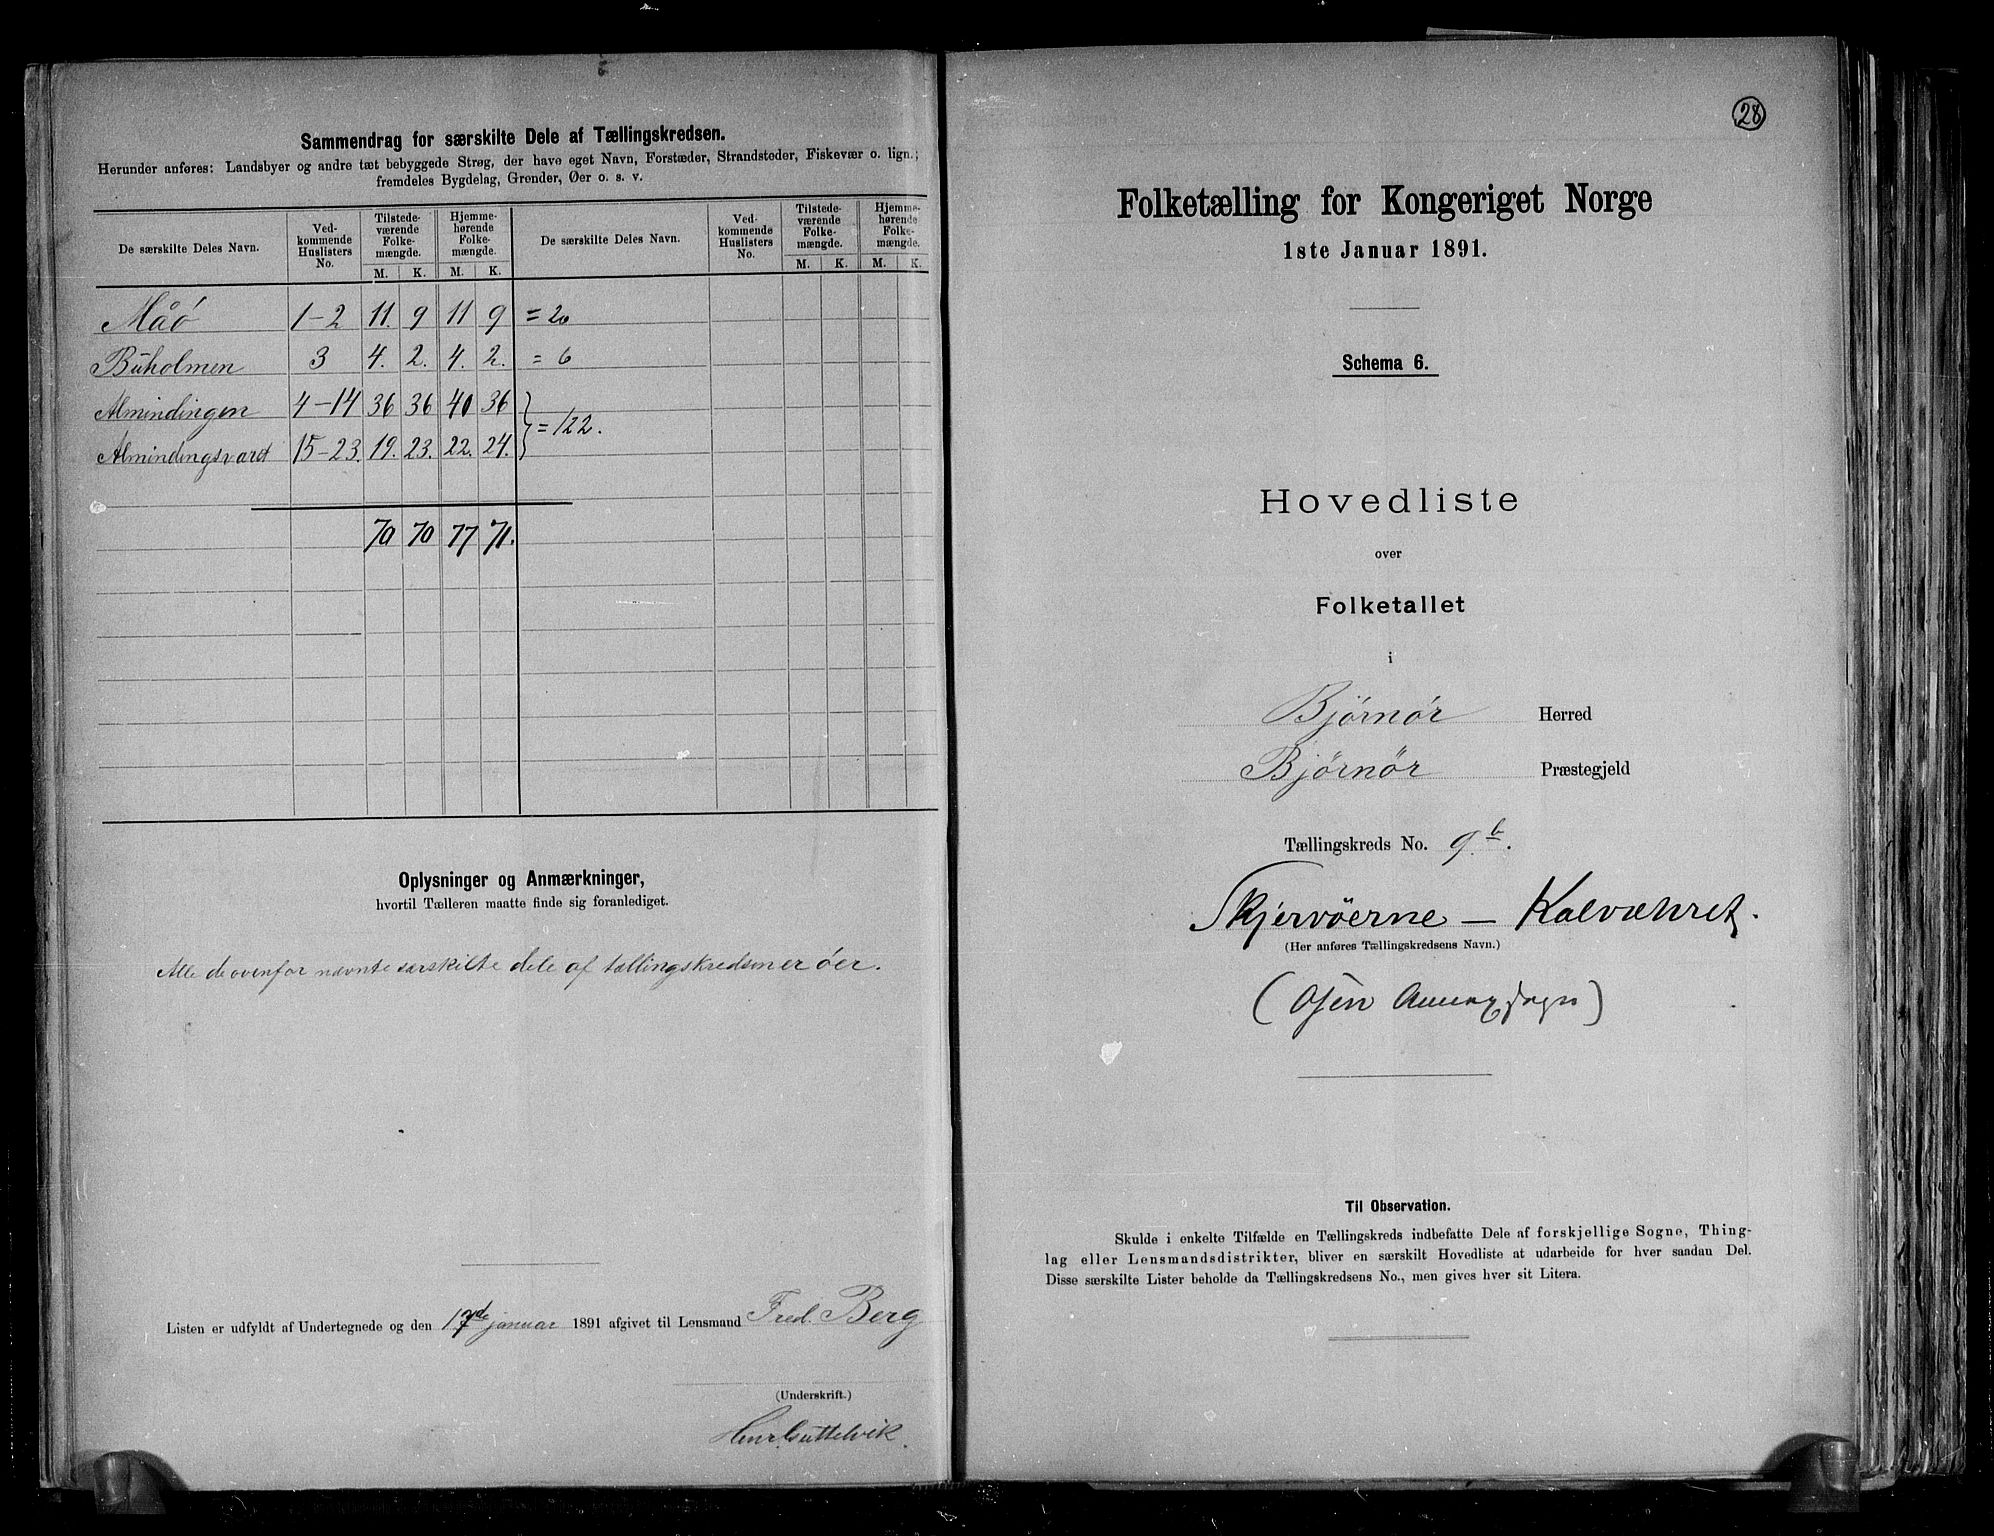 Sammendrag for særskilte Dele af Tællingskredsen.
Herunder anføres: Landsbyer og andre tæt bebyggede Strøg, der have eget Navn, Forstæder, Strandsteder, Fiskevær o. lign.;
fremdeles Bygdelag, Grender, Øer o. s. v.
De særskilte Deles Navn. Ved-kommende Huslisters No. Tilstede-værende Folke-mængde. Hjemme-hørende Folke-mængde. De særskilte Deles Navn. Ved-kommende Huslisters No. Tilstede-værende Folke-mængde. Hjemme-hørende Folke-mængde.
M. K. M. K. M. K. M. K.
Måó 1-2 11. 9 11 9 = 20
Buholmen 3 4. 2. 4. 2. = 6
Almindingen 4-14 36 36 40 36
= 122.
Almindingsværet 15-23. 19. 23. 22. 24.
70 70 77 71.
Oplysninger og Anmærkninger,
hvortil Tælleren maatte finde sig foranlediget.
Alle de ovenfor nævnte særskilte dele af tællingskredsen er óer.
Listen er udfyldt af Undertegnede og den 17de januar 1891 afgivet til Lensmand Fred. Berg
(Underskrift.)
28
Folketælling for Kongeriget Norge
1ste Januar 1891.
Schema 6.
Hovedliste
over
Folketallet
i
Bjórnór Herred
Bjørnør Præstegjeld
Tællingskreds No. 9b.
Skjervöerne - Kalvæhret.
(Her anføres Tællingskredsens Navn.)
(Osen Annexsogn)
Til Observation.
Skulde i enkelte Tilfælde en Tællingskreds indbefatte Dele af forskjellige Sogne, Thing-
lag eller Lensmandsdistrikter, bliver en særskilt Hovedliste at udarbeide for hver saadan Del.
Disse særskilte Lister beholde da Tællingskredsens No., men gives hver sit Litera.